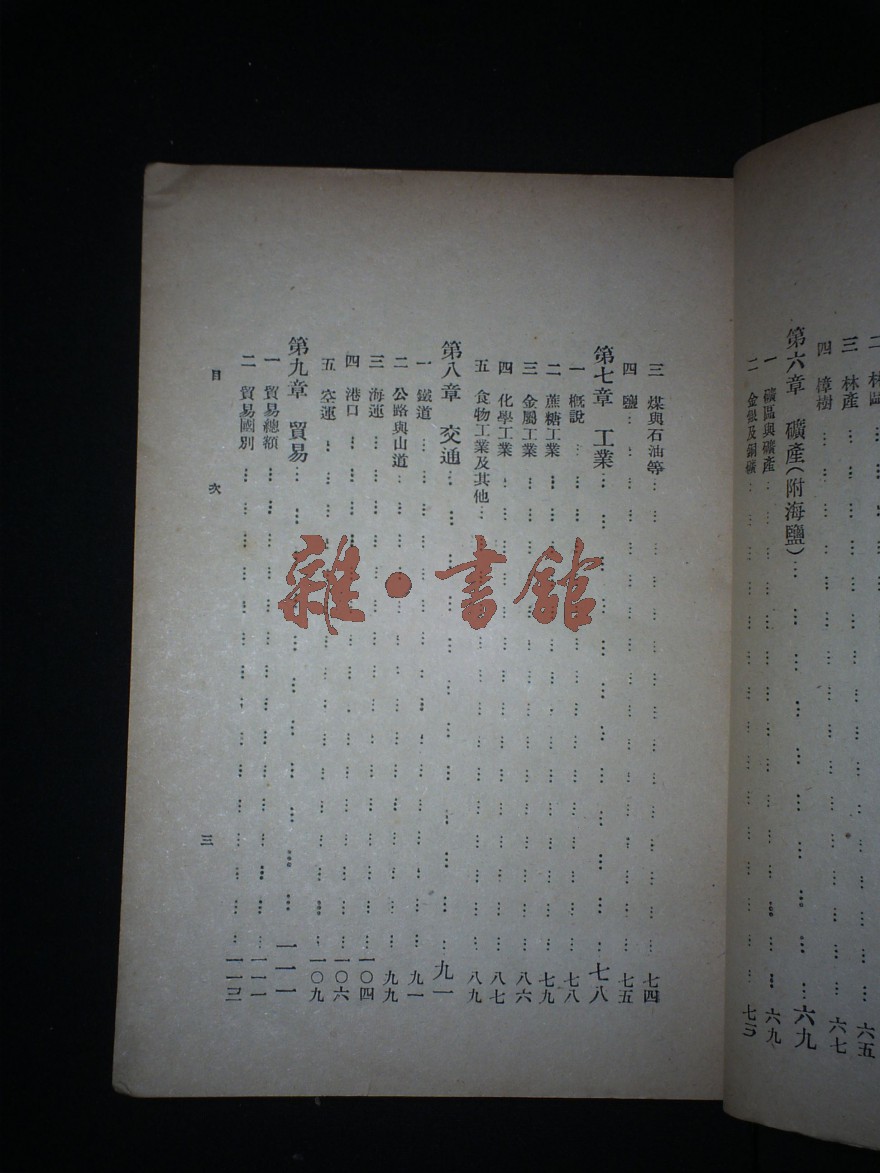 二 林區 六五
三 林產
四 樟樹 六七
第六章 礦產(附海鹽) 六九
一 礦區與礦產 六九
二 金銀及銅礦 七三
三 煤與石油等 七四
四 鹽 七五
第七章 工業 七八
一 概說 七八
二 蔗糖工業 七九
三 金屬工業 八六
四 化學工業 八七
五 食物工業及其他 八九
第八章 交通 九一
一 鐵道 九一
二 公路與山道 九九
三 海運 一〇四
四 港口 一〇六
五 空運 一〇九
第九章 貿易 一一一
一 貿易總額 一一一
二 貿易國別 一一三
目 次 三
雜·書館